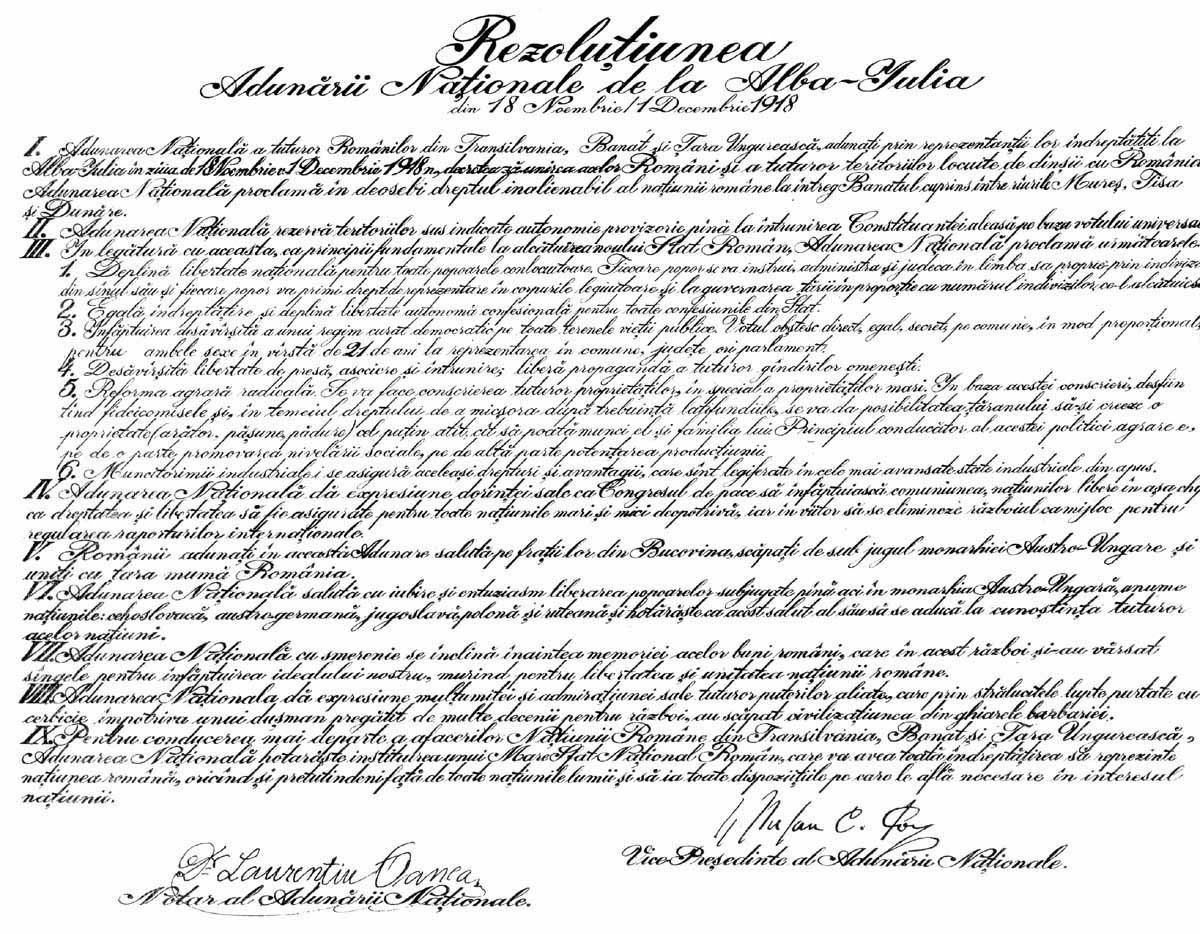 Rezoluțiunea
Adunării Naționale de la Alba-Iulia
din 18 Noembrie/1 Decembrie 1918
I. Adunarea Națională a tuturor Românilor din Transilvania, Banat și Țara Ungurească, adunați prin reprezentanții lor îndreptățiți la
Alba-Iulia în ziua de 18 Noembrie 1 Decembrie 1918, decretează unirea acelor Români și a tuturor teritoriilor locuite de dînșii cu România
Adunarea Națională proclamă în deosebi dreptul inalienabil al națiunii române la întreg Banatul cuprins între rîurile Mureș, Tisa
și Dunăre.
II. Adunarea Națională rezervă teritoriilor sus indicate autonomie provizorie pînă la întrunirea Constituantei aleasă pe baza votului universa
III. In legătură cu aceasta, ca principii fundamentale la alcătuirea noului Stat Român, Adunarea Națională proclamă următoarele
1. Deplină libertate națională pentru toate popoarele conlocuitoare. Fiecare popor se va instrui, administra și judeca în limba sa proprie prin indivizi
din sînul său și fiecare popor va primi drept de reprezentare în corpurile legiuitoare și la guvernarea țării în proporție cu numărul indivizilor, ce-l alcătuiesc
2. Egală îndreptățire și deplină libertate autonomă confesională pentru toate confesiunile din Stat.
3. Infăptuirea desăvîrșită a unui regim curat democratic pe toate terenele vieții publice. Votul obștesc direct, egal, secret, pe comune, în mod proporțional
pentru ambele sexe în vîrstă de 21 de ani la reprezentarea în comune, județe ori parlament.
4. Desăvîrșită libertate de presă, asociere și întrunire; liberă propagandă a tuturor gîndirilor omenești.
5. Reforma agrară radicală. Se va face conscrierea tuturor proprietăților, în special a proprietăților mari. In baza acestei conscrieri, desfiin
țînd fideicomisele și, în temeiul dreptului de a micșora după trebuință latifundiile, se va da posibilitatea țăranului să-și creeze o
proprietate (arător, pășune, pădure) cel puțin atît, cît să poată munci el și familia lui. Principiul conducător al acestei politici agrare e,
pe de o parte promovarea nivelării sociale, pe de altă parte potențarea producțiunii
6. Muncitorimii industriale i se asigură aceleași drepturi și avantagii, care sînt legiferate în cele mai avansate state industriale din apus.
IV. Adunarea Națională dă expresiune dorinței sale ca Congresul de pace să înfăptuiască comuniunea, națiunilor libere în așa chi
ca dreptatea și libertatea să fie asigurate pentru toate națiunile mari și mici deopotrivă, iar în viitor să se elimineze războiul ca mijloc pentru
regularea raporturilor internaționale.
V. Românii adunați în aceasta Adunare salută pe frații lor din Bucovina, scăpați de sub jugul monarhiei Austro-Ungare și
uniți cu țara mumă România.
VI. Adunarea Națională salută cu iubire și entuziasm liberarea popoarelor subjugate pînă aci în monarhia Austro-Ungară, anume
națiunile: cehoslovacă, austrogermană, jugoslavă, polonă și ruteană și hotărăște ca acest salut al său să se aducă la cunoștința tuturor
acelor națiuni.
VII. Adunarea Națională cu smerenie se închină înaintea memoriei acelor buni români, care în acest război și-au vărsat
sîngele pentru înfăptuirea idealului nostru, murind pentru libertatea și unitatea națiunii române.
VIII. Adunarea Naționala dă expresiune mulțumitei și admirațiunei sale tuturor puterilor aliate, care prin strălucitele lupte purtate cu
cerbicie împotriva unui dușman pregătit de multe decenii pentru război, au scăpat civilizațiunea din ghiarele barbariei.
IX. Pentru conducerea mai departe a afacerilor Națiunii Române din Transilvania, Banat și Țara Ungurească,
Adunarea Națională hotarăște instituirea unui Mare Sfat Național Român, care va avea toată îndreptățirea să reprezinte
națiunea română, oricînd și pretutindeni față de toate națiunile lumii și să ia toate dispozițiile pe care le află necesare în interesul
națiunii.
C.
Vice Președinte al Adunării Naționale.
Dr. Laurențiu Oanea
Notar al Adunării Naționale.